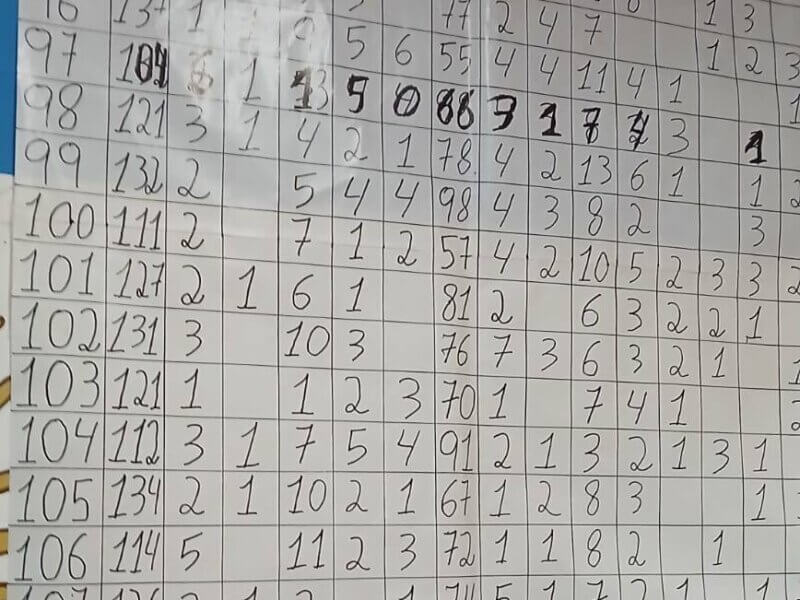 1 3
77 2 4 7 1 2 3
137 1 5 6 55 4 4 11 4 1 1
97 104 1 13 5 0 88 3 1 7 4 3 1
98 121 3 1 4 2 1 78 4 2 13 6 1 1 2
99 132 2 5 4 4 98 4 3 8 2 3
100 111 2 7 1 2 57 4 2 10 5 2 3 3 2
101 127 2 1 6 1 81 2 6 3 2 2 1
102 131 3 10 3 76 7 3 6 3 2 1 1
103 121 1 1 2 3 70 1 7 4 1 2
104 112 3 1 7 5 4 91 2 1 3 2 1 3 1
105 134 2 1 10 2 1 67 1 2 8 3 1
106 114 5 11 2 3 72 1 1 8 2 1